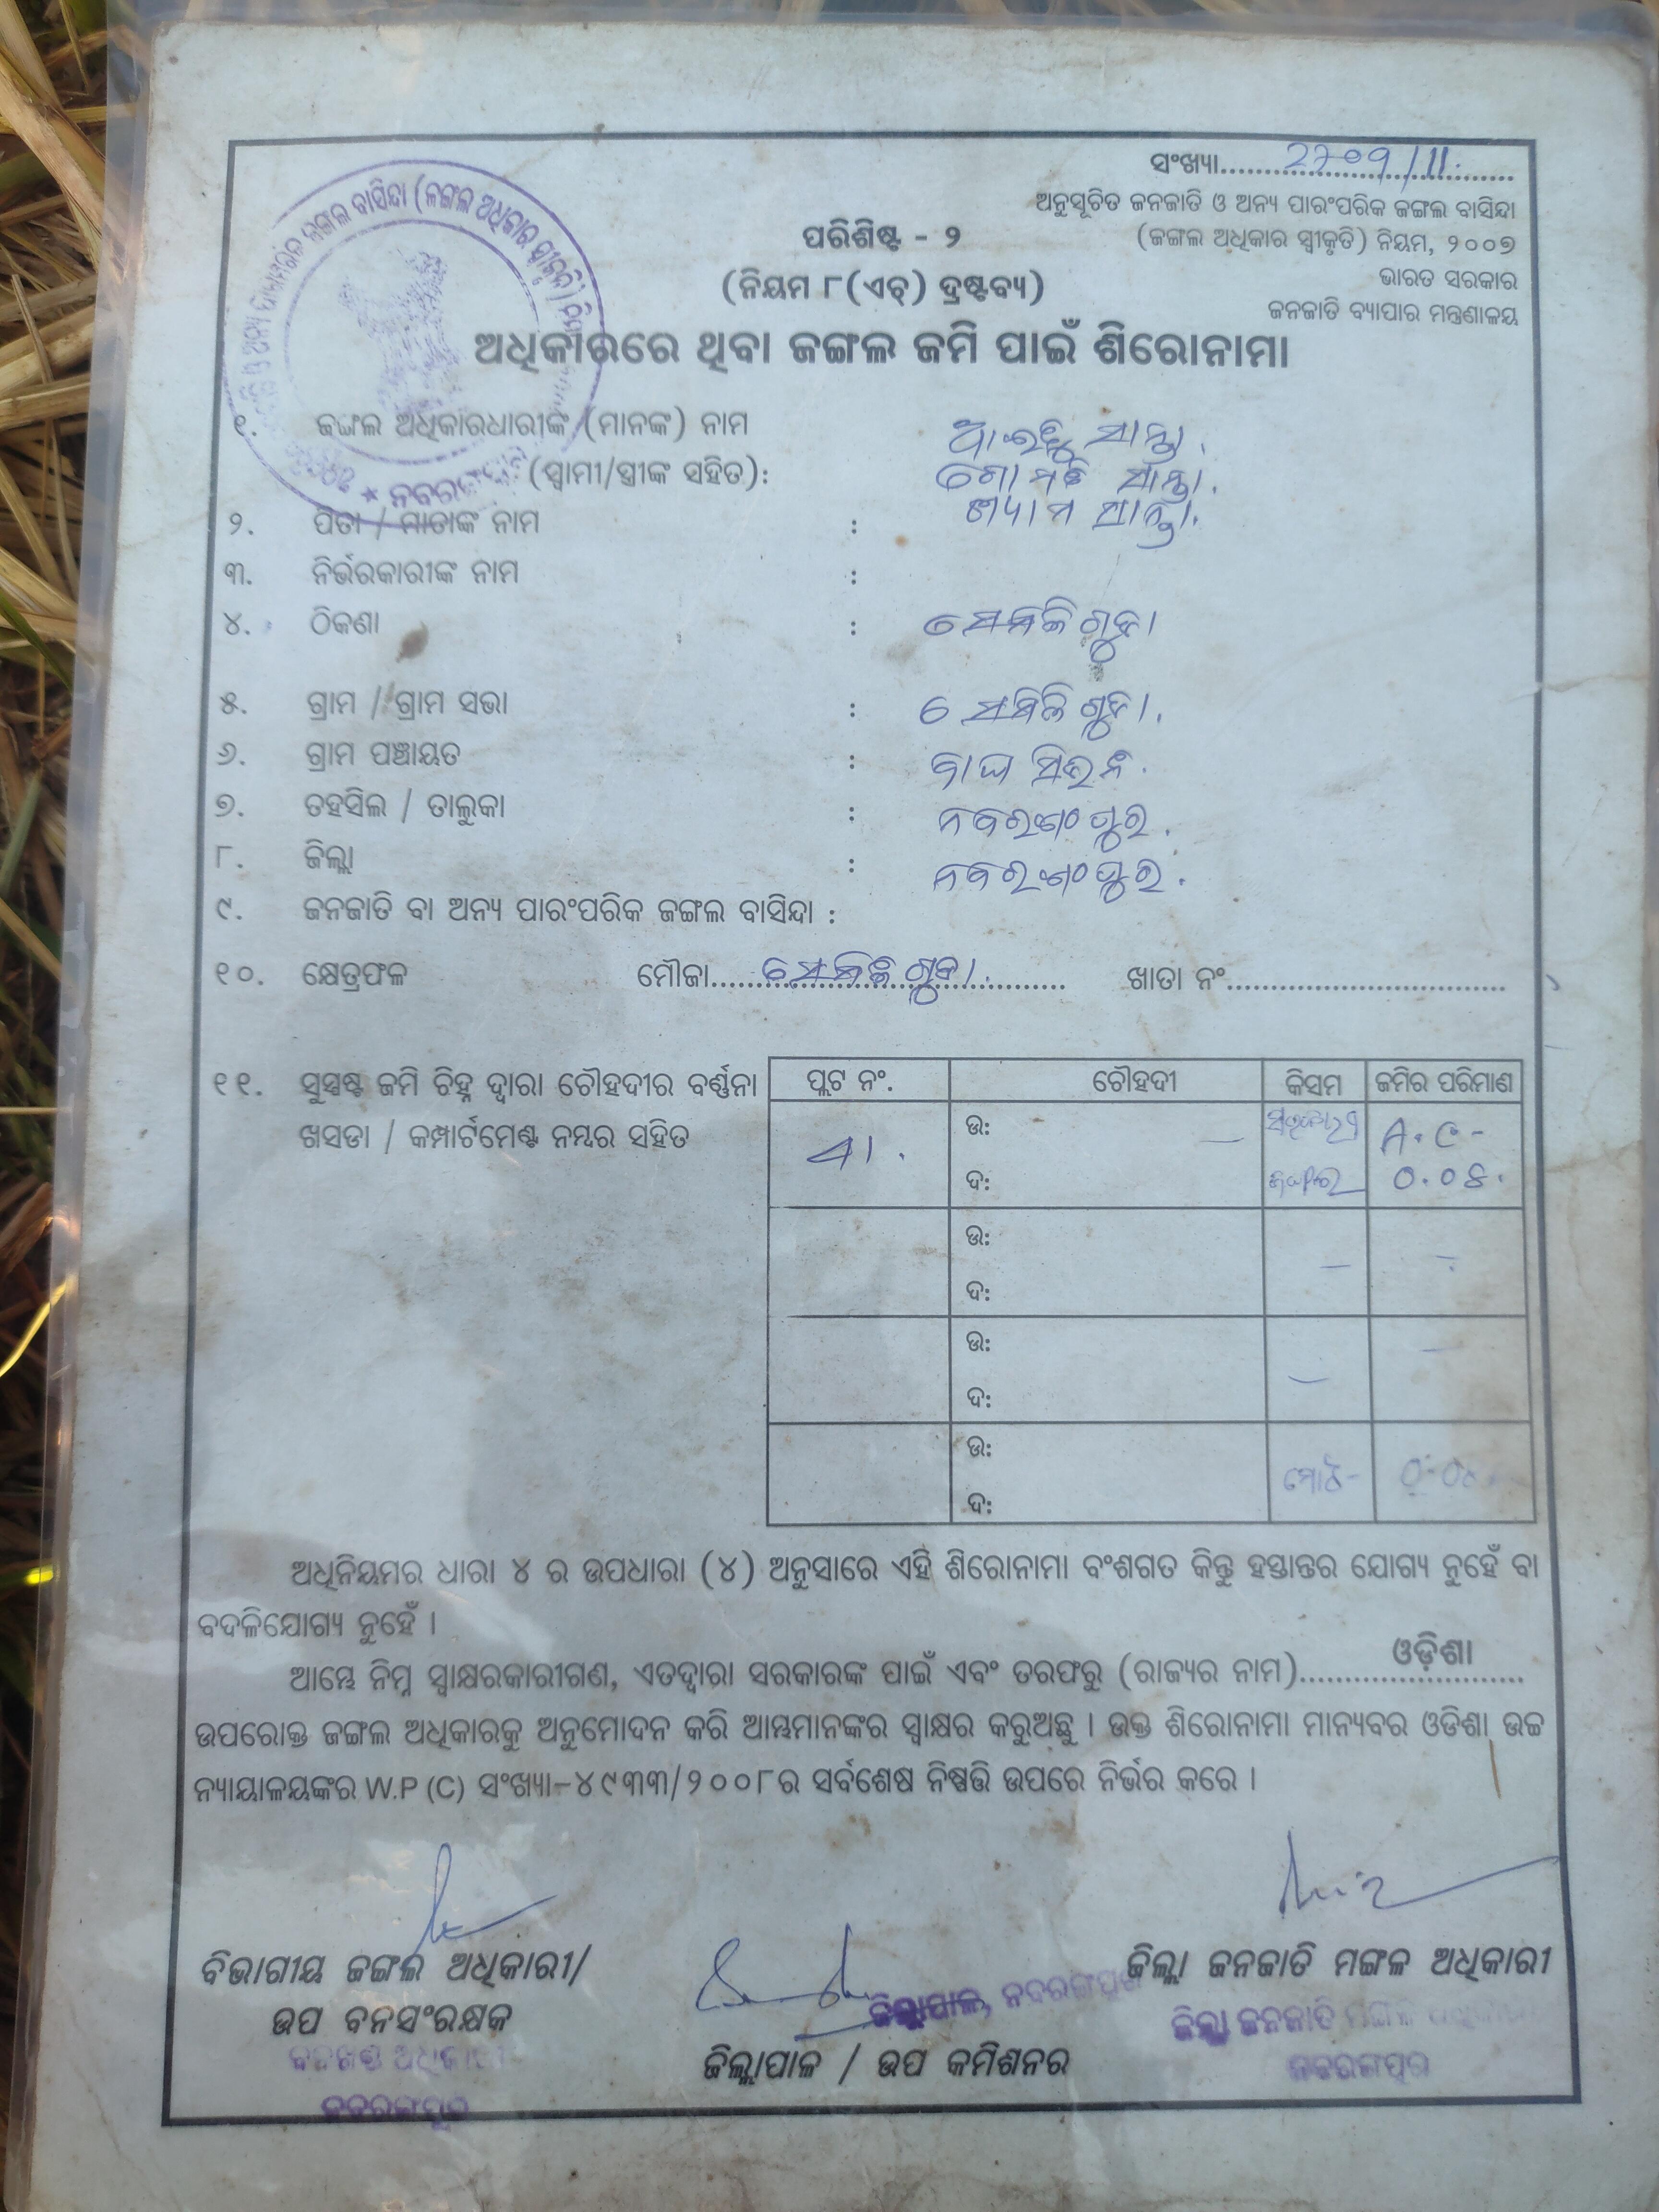 ସଂଖ୍ୟା..........2709/11.
ଅନୁସୂଚିତ ଜନଜାତି ଓ ଅନ୍ୟ ପାରଂପରିକ ଜଙ୍ଗଲ ବାସିନ୍ଦା
(ଜଙ୍ଗଲ ଅଧିକାର ସ୍ୱୀକୃତି) ନିୟମ, ୨୦୦୭
ଭାରତ ସରକାର
ଜନଜାତି ବ୍ୟାପାର ମନ୍ତ୍ରଣାଳୟ
ପରିଶିଷ୍ଟ - ୨
(ନିୟମ ୮(ଏଚ୍) ଦ୍ରଷ୍ଟବ୍ୟ)
ଅଧିକାରରେ ଥିବା ଜଙ୍ଗଲ ଜମି ପାଇଁ ଶିରୋନାମା
୧. ଜଙ୍ଗଲ ଅଧିକାରଧାରୀଙ୍କ (ମାନଙ୍କ) ନାମ ସାନ୍ତା.
(ସ୍ୱାମୀ/ସ୍ତ୍ରୀଙ୍କ ସହିତ): ସାନ୍ତା.
୨. ପିତା / ମାତାଙ୍କ ନାମ : ସାନ୍ତା.
୩. ନିର୍ଭରକାରୀଙ୍କ ନାମ :
୪. ଠିକଣା : ସେମିଳିଗୁଡା
୫. ଗ୍ରାମ / ଗ୍ରାମ ସଭା : ସେମିଳିଗୁଡା.
୬. ଗ୍ରାମ ପଞ୍ଚାୟତ :
୭. ତହସିଲ / ତାଲୁକା : ନବରଂଗପୁର.
୮. ଜିଲ୍ଲା : ନବରଂଗପୁର.
୯. ଜନଜାତି ବା ଅନ୍ୟ ପାରଂପରିକ ଜଙ୍ଗଲ ବାସିନ୍ଦା :
୧୦. କ୍ଷେତ୍ରଫଳ ମୌଜା......ସେମିଳିଗୁଡା....... ଖାତା ନଂ................................
୧୧. ସୁସ୍ପଷ୍ଟ ଜମି ଚିହ୍ନ ଦ୍ୱାରା ଚୌହଦୀର ବର୍ଣ୍ଣନା
ଖସଡା / କମ୍ପାର୍ଟମେଣ୍ଟ ନମ୍ବର ସହିତ
ପ୍ଲଟ ନଂ. ଚୌହଦୀ କିସମ ଜମିର ପରିମାଣ
ଉ: A.C-
ଦ: ଜଙ୍ଗଲ ୦.୦୪.
ଉ:
ଦ:
ଉ:
ଦ:
ଉ: ମୋଟ-
ଦ:
ଅଧିନିୟମର ଧାରା ୪ ର ଉପଧାରା (୪) ଅନୁସାରେ ଏହି ଶିରୋନାମା ବଂଶଗତ କିନ୍ତୁ ହସ୍ତାନ୍ତର ଯୋଗ୍ୟ ନୁହେଁ ବା
ବଦଳିଯୋଗ୍ୟ ନୁହେଁ ।
ଆମ୍ଭେ ନିମ୍ନ ସ୍ୱାକ୍ଷରକାରୀଗଣ, ଏତଦ୍ୱାରା ସରକାରଙ୍କ ପାଇଁ ଏବଂ ତରଫରୁ (ରାଜ୍ୟର ନାମ)........ଓଡ଼ିଶା........
ଉପରୋକ୍ତ ଜଙ୍ଗଲ ଅଧିକାରକୁ ଅନୁମୋଦନ କରି ଆମ୍ଭମାନଙ୍କର ସ୍ୱାକ୍ଷର କରୁଅଛୁ । ଉକ୍ତ ଶିରୋନାମା ମାନ୍ୟବର ଓଡିଶା ଉଚ୍ଚ
ନ୍ୟାୟାଳୟଙ୍କର W.P (C) ସଂଖ୍ୟା-୪୯୩୩/୨୦୦୮ର ସର୍ବଶେଷ ନିଷ୍ପତ୍ତି ଉପରେ ନିର୍ଭର କରେ ।
ବିଭାଗୀୟ ଜଙ୍ଗଲ ଅଧିକାରୀ/
ଉପ ବନସଂରକ୍ଷକ
ବନଖଣ୍ଡ ଅଧିକାରୀ
ନବରଙ୍ଗପୁର
ଜିଲ୍ଲାପାଳ, ନବରଙ୍ଗପୁର
ଜିଲ୍ଲାପାଳ / ଉପ କମିଶନର
ଜିଲ୍ଲା ଜନଜାତି ମଙ୍ଗଳ ଅଧିକାରୀ
ଜିଲ୍ଲା ଜନଜାତି ମଙ୍ଗଳ
ନବରଙ୍ଗପୁର